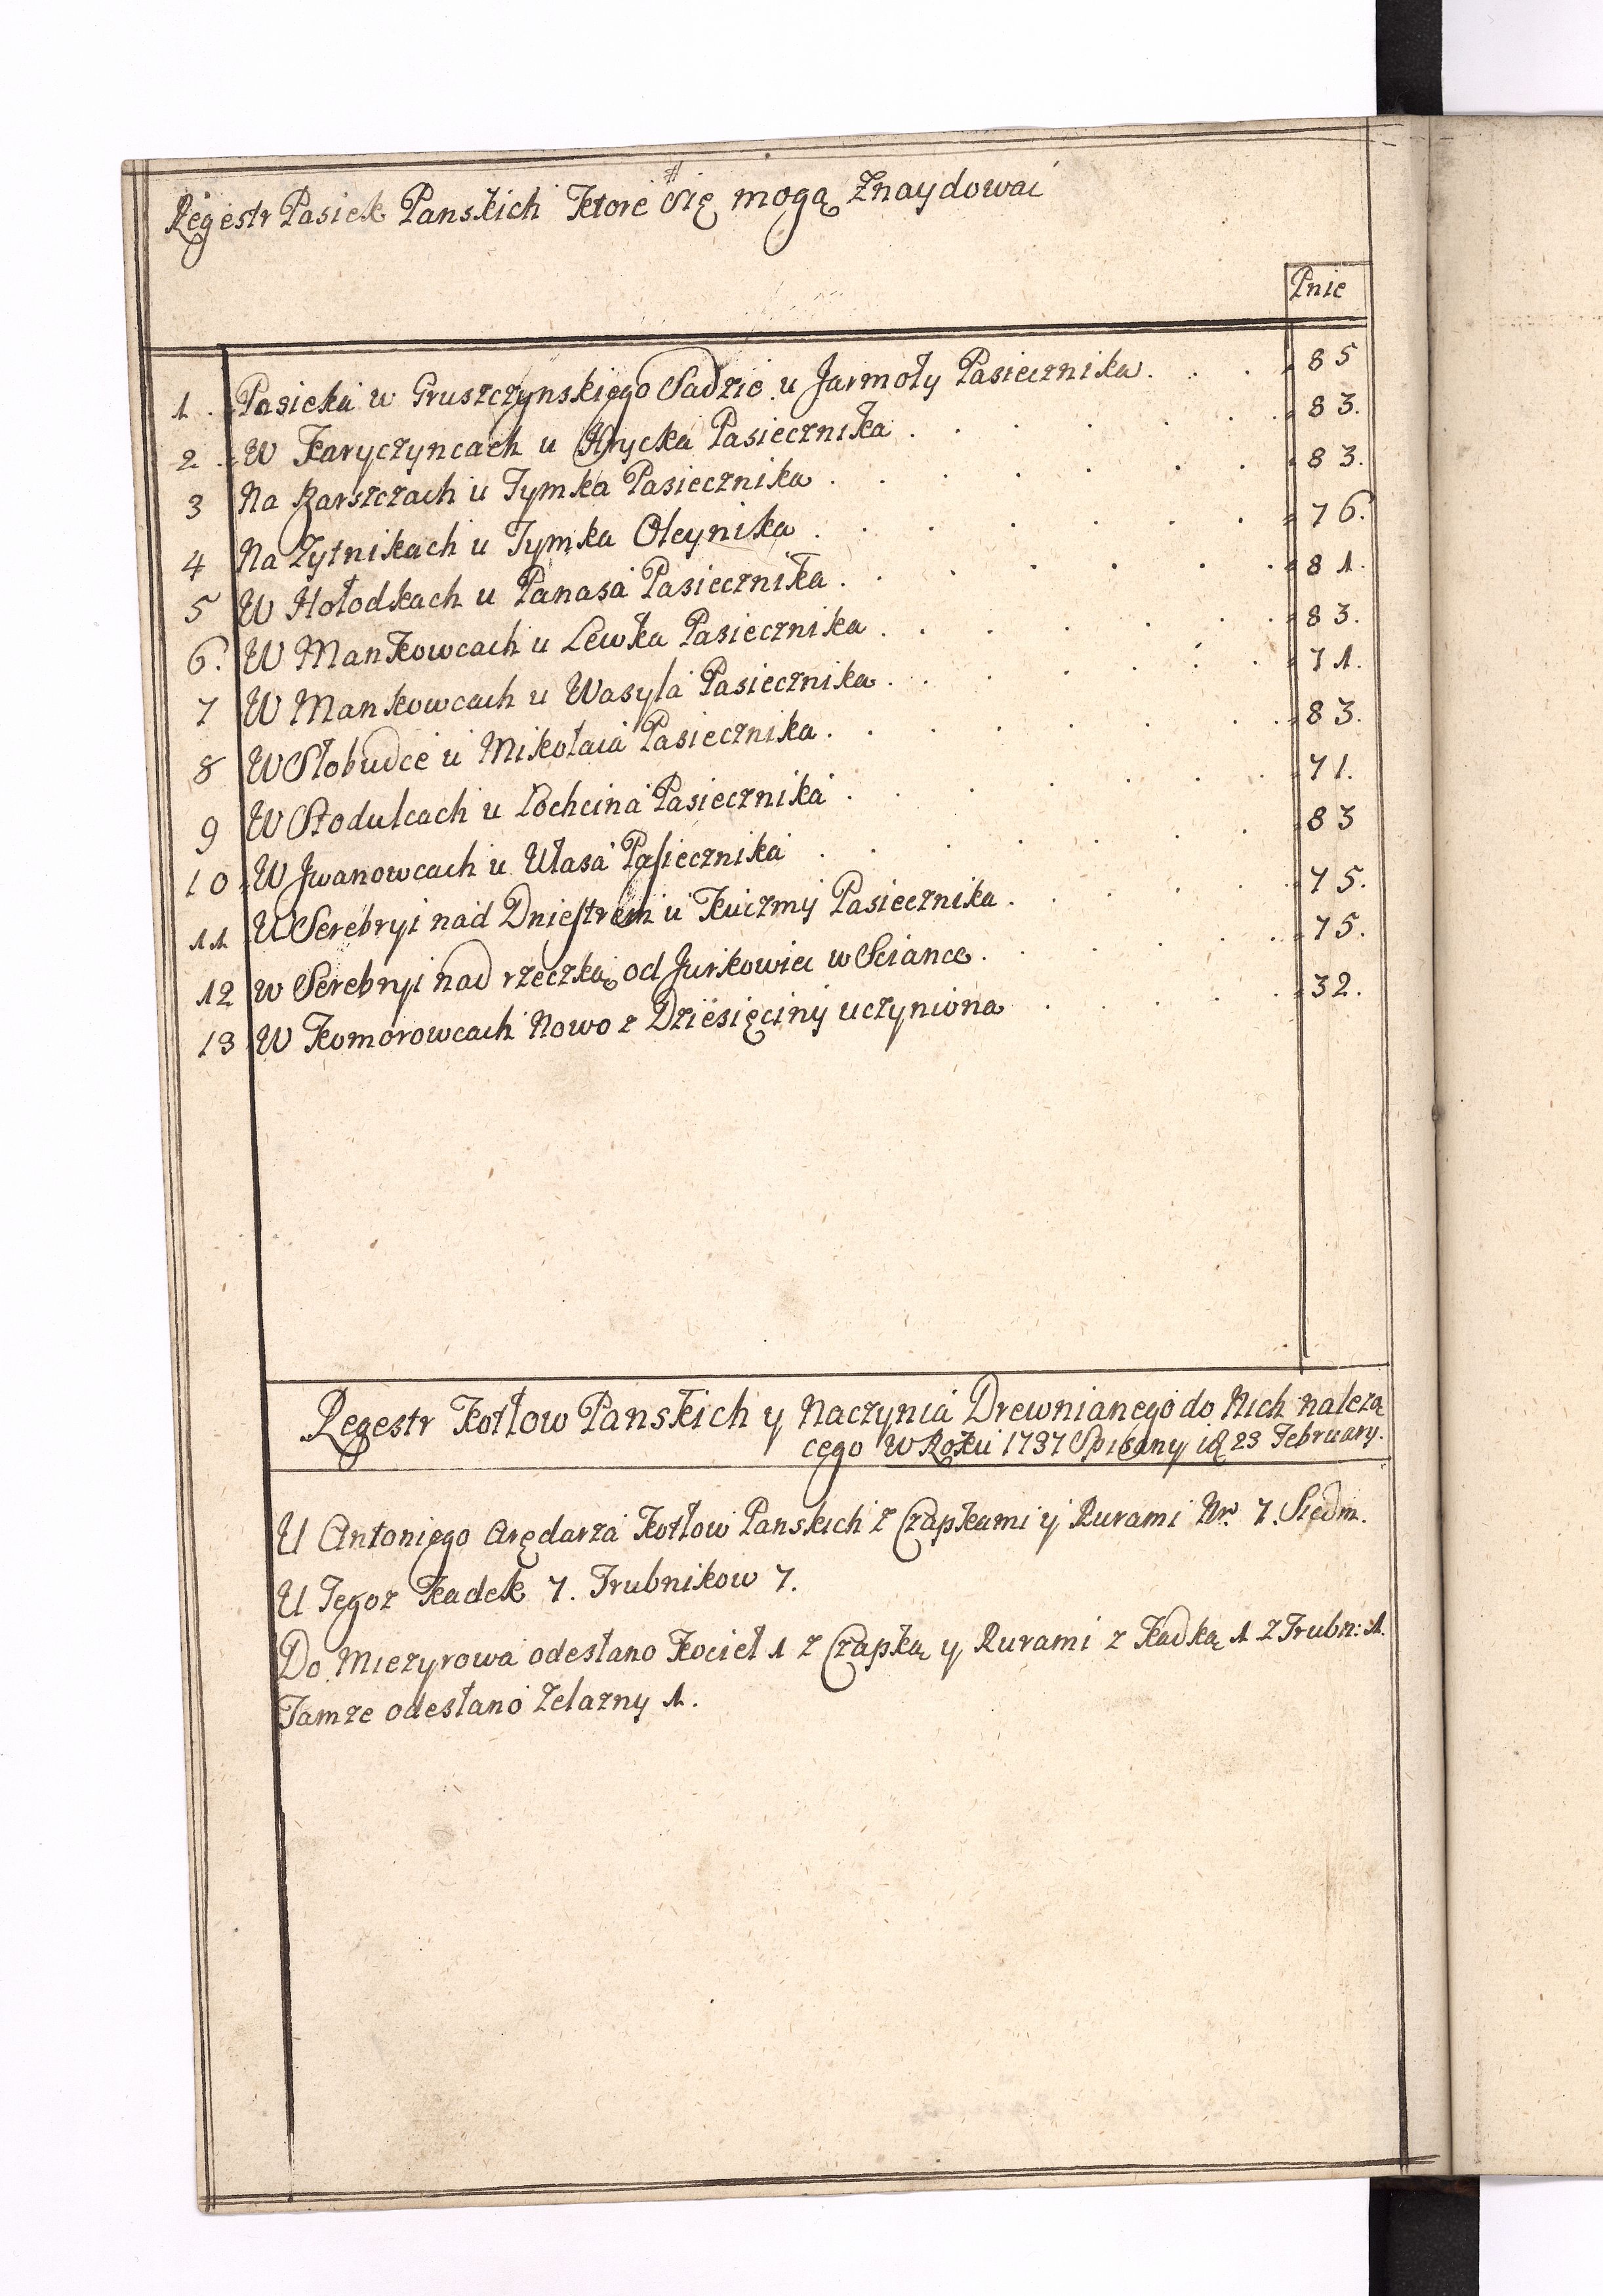 Regestr Pasiek Panskich Ktore Się mogą Znaydować
Pnie
1. Pasieka w Gruszczynskiego Sadzie u Jarmoły Pasiecznika . . . 85
2. W Karyczyncach u Hrycka Pasiecznika . . . 83.
3 Na Barszczach u Tymka Pasiecznika . . . 83.
4 Na Zytnikach u Tymka Oleynika . . . 76.
5 W Hołodkach u Panasa Pasiecznika . . . 81.
6. W Mankowcach u Lewka Pasiecznika . . . 83.
7 W Mankowcach u Wasyla Pasiecznika . . . 71.
8 W Słobudce u Mikołaia Pasiecznika . . . 83.
9 W Stodulcach u Pasiecznika . . . 71.
10 W Jwanowcach u Własa Pasiecznika . . . 83
11 W Serebryi nad Dniestrem u Kuczmy Pasiecznika . . . 75.
12 w Serebryi nad rzeczką od Jurkowiec w Sciance . . . 75.
13 W Komorowcach Nowo z Dziesięciny uczyniona . . . 32.
Regestr Kotłow Panskich y Naczynia Drewnianego do Nich należą
cego W Roku 1737 Spisany 23 February.
U Antoniego Arędarza Kotłow Panskich z Czapkami y Rurami Nr. 7. Siedm.
U Tegoz Kadek 7. Trubnikow 7.
Do Miezyrowa odesłano Kocieł 1 z Czapką y Rurami z Kadką 1 z Trubn: 1.
Tamze odesłano Zelazny 1.